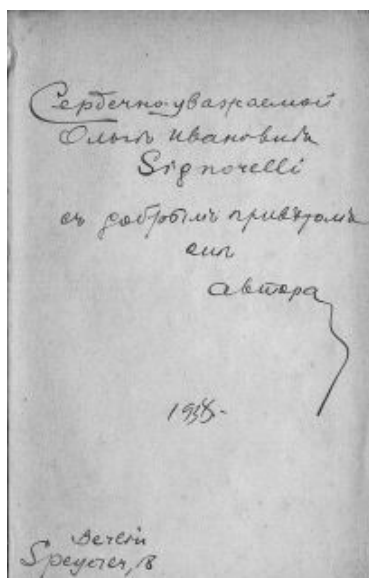 Сердечно-уважаемой
Ольгѣ Ивановнѣ
Signorelli
съ добрымъ привѣтомъ
отъ
автора
Speyerer, 18